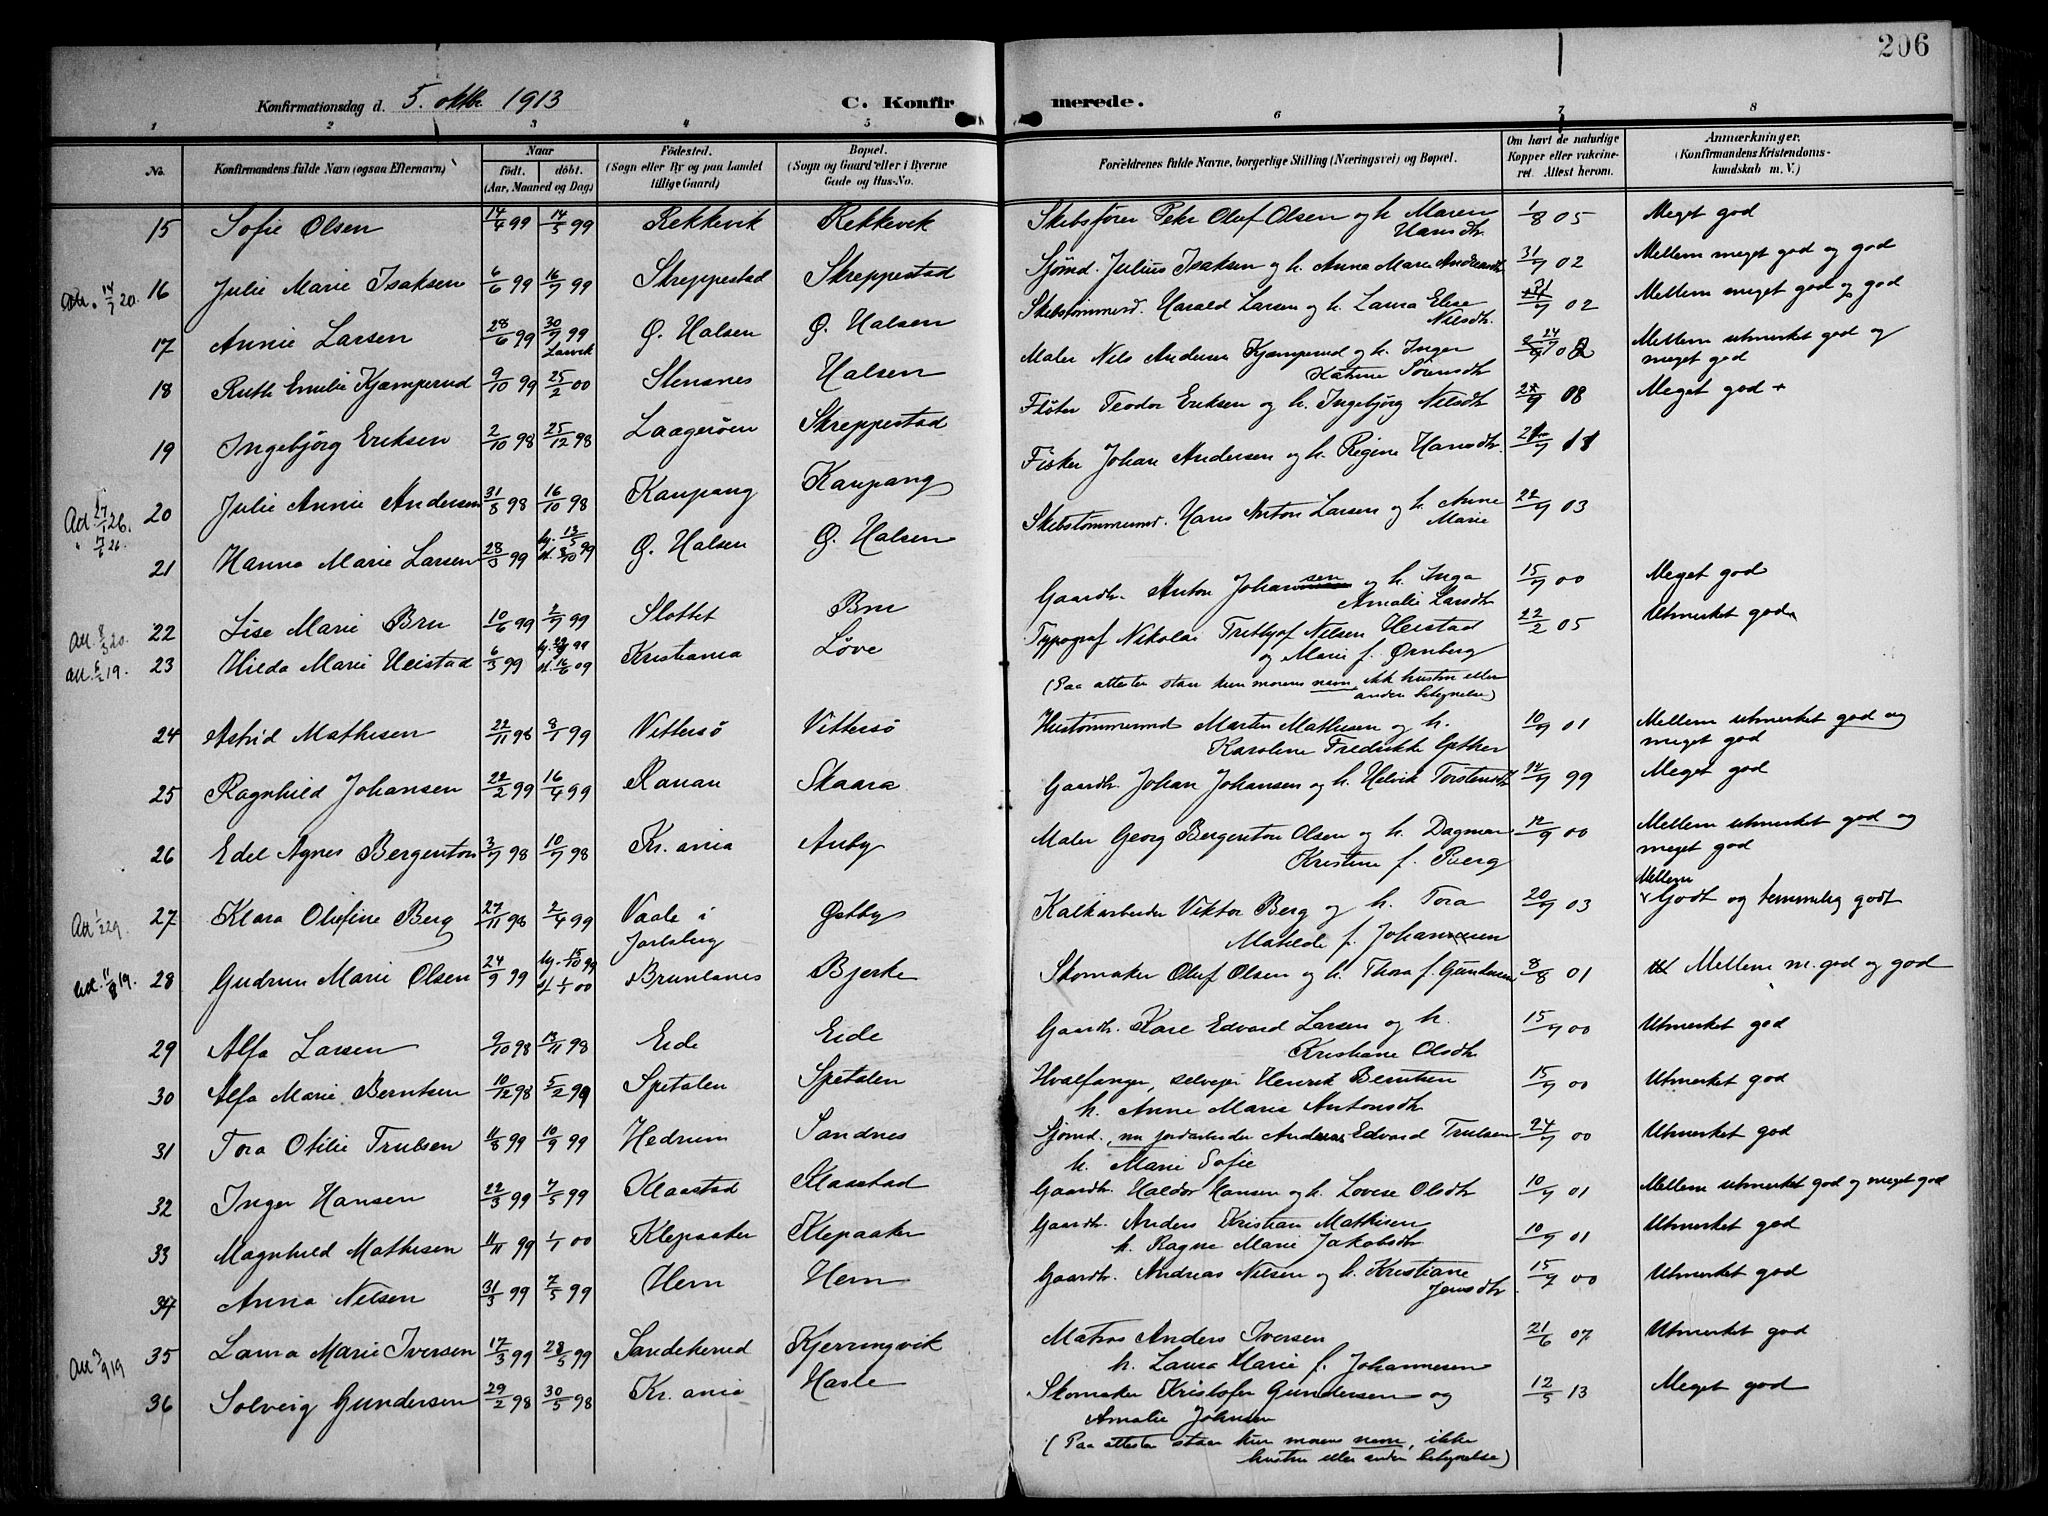 206
Konfirmationsdag d. 5. oktbr. 1913 C. Konfirmerede.
1 2 3 4 5 6 7 8
No. Konfirmandens fulde Navn (ogsaa Efternavn) Naar født. døbt. (Aar, Maaned og Dag) Fødested. (Sogn eller By og paa Landet tillige Gaard) Bopæl. (Sogn og Gaard eller i Byerne Gade og Hus-No. Forældrenes fulde Navne, borgerlige Stilling (Næringsvei) og Bopæl. Om havt de naturlige Kopper eller vakcineret. Attest herom. Anmærkninger. (Konfirmandens Kristendomskundskab m. V.)
15 Sofie Olsen 14/4 99 14/5 99 Rekkevik Rekkevik Skibsfører Peter Oluf Olsen og h. Maren Hansdtr. 1/8 05 Meget god
16 Julie Marie Isaksen 6/6 99 16/7 99 Skreppestad Skreppestad Sjømd. Julius Isaksen og h. Anna Marie Andreasdtr 31/7 02 Mellem meget god og god
17 Annie Larsen 28/6 99 30/7 99 Larvik Ø. Halsen Ø. Halsen Skibstømmermd. Harald Larsen og h. Laura Elise Nilsdtr. 02 Mellem meget god og god
18 Ruth Emilie Kjæmperud 9/10 99 25/2 00 Stensnes Halsen Maler Nils Anderse Kjæmperud og h. Inger Katrine Sørensdtr Mellem utmerket god og meget god
19 Ingebjørg Eriksen 2/10 98 25/12 98 Laagerøen Skreppestad Fløter Teodor Eriksen og h. Ingebjørg Nilsdtr 08 Meget god +
20 Julie Annie Andersen 31/8 98 16/10 98 Kaupang Kaupang Fisker Johan Andersen og h. Regine Hansdtr. 11
21 Hanna Marie Larsen 28/3 99 Ø. Halsen Ø. Halsen Skibstømmermd. Hans Anton Larsen og h. Anne Marie 22/9 03
22 Lise Marie Bru 10/6 99 2/7 99 Slottet Bru Gaardbr. Anton Johansen og h. Inga Amalie Larsdtr 15/9 00 Meget god
23 Hilda Marie Heistad 6/3 99 Kristiania Løve Typograf Nikolai Trethjof Nilsen Heistad og Marie f. Ørnberg 22/2 05 Utmerket god
(Paa attesten staar kun morens navn, ikk hustru eller anden betegnelse)
24 Astrid Mathisen 22/11 98 8/1 99 Vittersö Vittersö Hustømmermd Martin Mathisen og h. Karoline Fredrikke 10/9 01 Mellem utmerket god og meget god
25 Ragnhild Johansen 22/2 99 16/4 99 Ranau Skaara Gaardbr. Johan Johansen og h. Helvik Torstensdtr 14/9 99 Meget god
26 Edel Agnes Bergenton 3/7 98 10/7 98 Kr.ania Auby Maler Georg Bergenton Olsen og h. Dagmar Kristine f. 12/9 00 Mellem utmerket god og meget god
27 Klara Olufine Berg 27/11 98 2/4 99 Vaale i Jarlsberg Østby Kalkarbeider Viktor Berg og h. Tora Matilde f. Johannesen 20/9 03 Mellem Godt og temmelig godt
28 Gudrun Marie Olsen 24/9 99 Brunlanes Bjerke Skomaker Oluf Olsen og h. Thora f. Gundersen 8/8 01 Mellem m. god og god
29 Alfa Larsen 9/10 98 13/11 98 Eide Eide Gaardbr. Kare Edvard Larsen og h. Kristiane Olsdtr 15/9 00 Utmerket god
30 Alfa Marie Berntsen 10/12 98 5/2 99 Spetalen Spetalen Hvalfanger, selveier Henrik Berntsen h. Anne Marie Antonsdtr 15/9 00 Utmerket god
31 Tora Otilie Trulsen 11/8 99 10/9 99 Hedrum Sandnes Sjømd., nu jordarbeider Andreas Edvard Trulsen h. Marie Sofie 24/9 00 Utmerket god
32 Inger Hansen 22/3 99 7/5 99 Klaastad Klaastad Gaardbr. Haldor Hansen og h. Lovise Olsdtr 10/9 01 Mellem utmerket god og meget god
33 Magnhild Mathisen 11/11 99 1/1 00 Klepaaker Klepaaker Gaardbr. Anders Kristian Mathisen h. Ragne Marie Jakobsdtr 10/9 01 Utmerket god
34 Anna Nilsen 31/3 99 7/5 99 Hem Hem Gaardbr. Andreas Nilsen og h. Kristiane Jensdtr 15/9 00 Utmerket god
35 Laura Marie Iversen 17/3 99 28/5 99 Sandeherred Kjerringvik Matros Anders Iversen h. Laura Marie f. Johannesen 21/6 07 Utmerket god
36 Solveig Gundersen 29/2 98 30/5 98 Kr.ania Hasle Skomaker Kristofer Gundersen og Amalie Johnsen 12/5 13 Meget god
(Paa attesten staar kun morens navn, ikke hustru eller anden betegnelse)